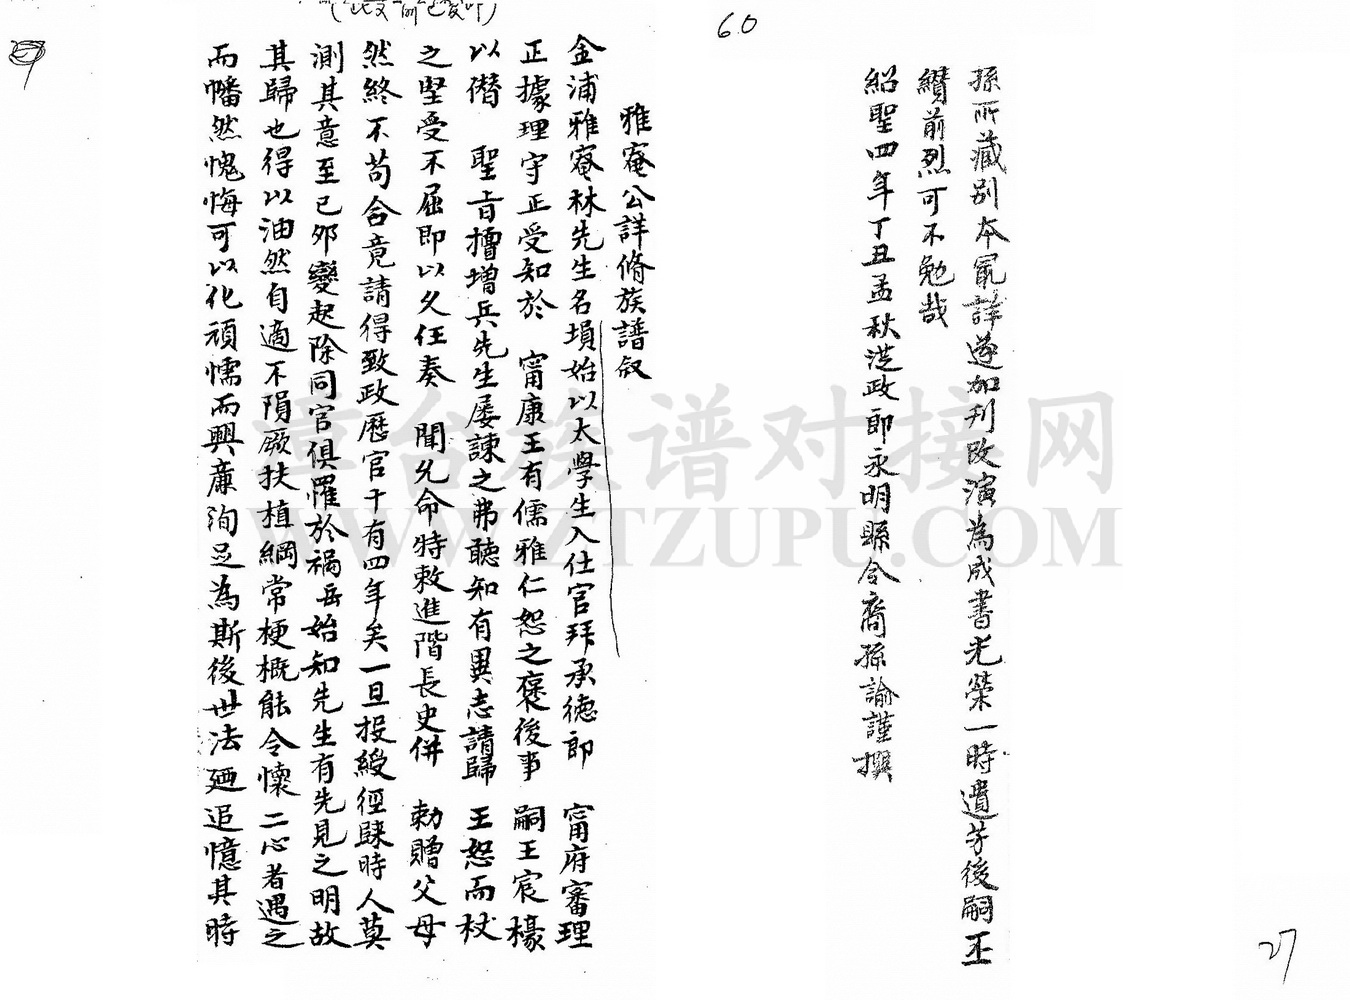 60
孫所藏別本冣詳遂加刊改演為成書光榮一時遺芳後嗣丕
纘前烈可不勉哉
紹聖四年丁丑孟秋淇政郎永明縣令裔孫諭謹撰
27
(此文前已复印)
雅菴公詳脩族譜叙
金浦雅菴林先生名塤始以太學生入仕官拜承德郎 甯府審理
正據理守正受知於 甯康王有儒雅仁恕之褒後事 嗣王宸檺
以僭 聖旨擅增兵先生屡諫之弗聽知有異志請歸 王怒而杖
之堅受不屈即以久任奏 聞允命特敕進階長史併 勅贈父母
然終不苟合竟請得致政歷官十有四年矣一旦投綬徑歸時人莫
測其意至已夘變起除同官俱罹於禍岳始知先生有先見之明故
其歸也得以油然自適不隕厥扶植綱常梗概能令懷二心者遇之
而幡然愧悔可以化頑懦而興廉洵足為斯後世法廼追憶其時
章台族谱对接网
WWW.ZTZUPU.COM